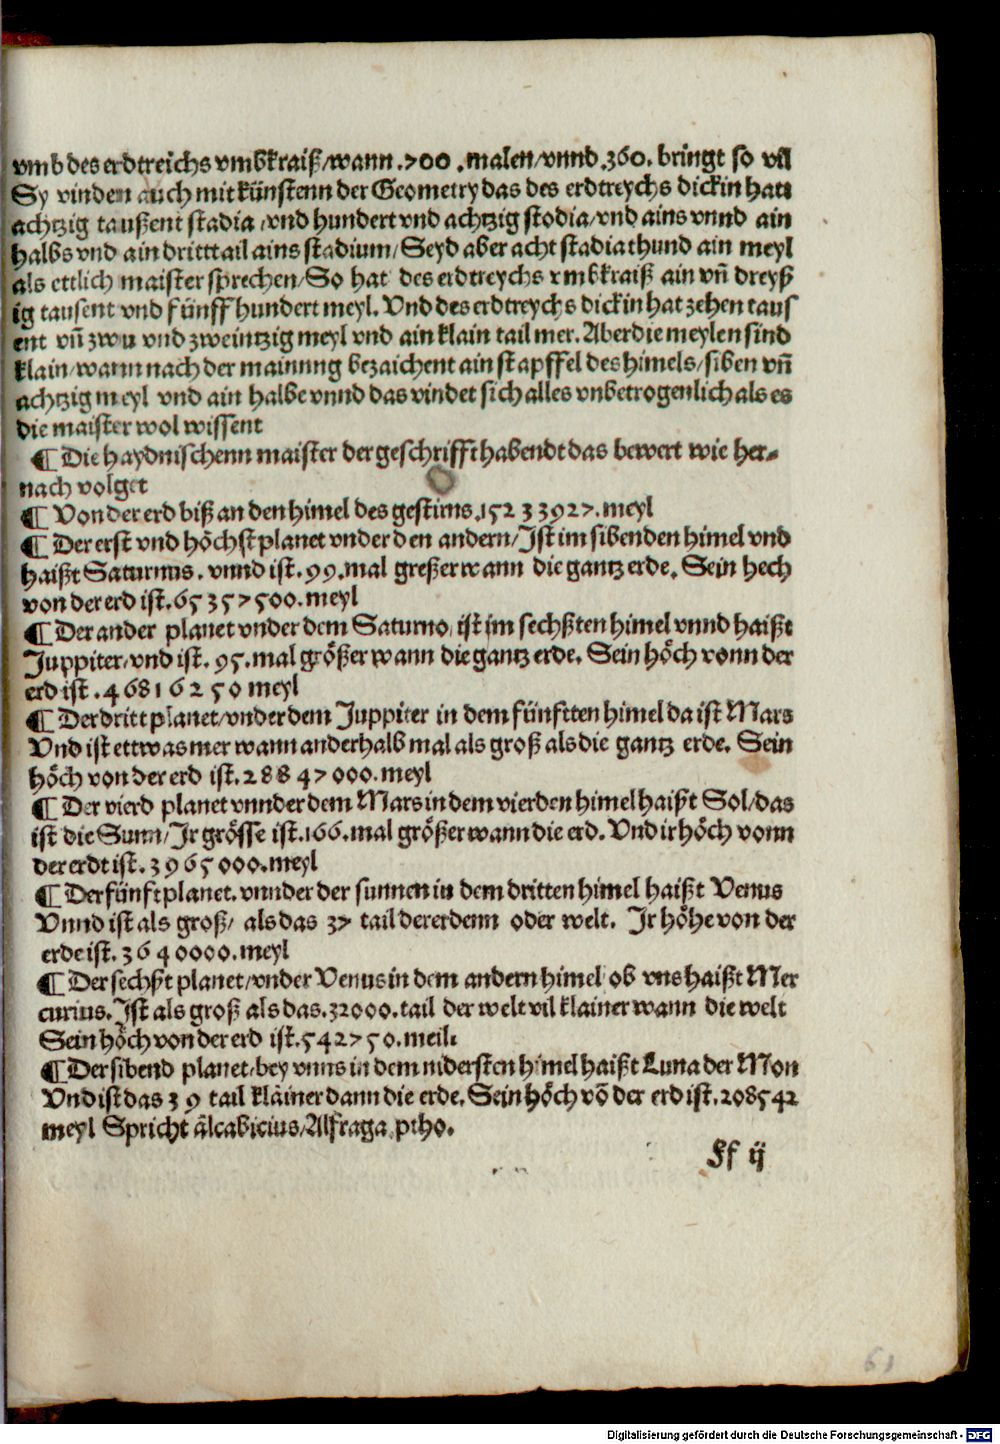 vmb des erdtreichs vmbkraiß/wann .700 .malen/vnnd.360. bringt so vil
Sy vinden auch mit künstenn der Geometry das des erdtreychs dick in hatt
achtzig taußent stadia /vnd hundert vnd achtzig stodia/vnd ains vnnd ain
halbs vnd ain dritttail ains stadium/Seyd aber acht stadia thund ain meyl
als ettlich maister sprechen/So hat des erdtreychs vmbkraiß ain vn̄ dreyß
ig tausent vnd fünffhundert meyl. Vnd des erdtreychs dick in hat zehen taus
ent vn̄ zwu vnd zweintzig meyl vnd ain klain tail mer. Aber die meylen sind
klain/wann nach der mainung bezaichent ain stapffel des himels/siben vn̄
achtzig meyl vnd ain halbe vnnd das vindet sich alles vnbetrogenlich als es
die maister wol wissent
¶ Die haydnischenn maister der geschrifft habendt das bewert wie her⸗
nach volget
¶ Von der erd biß an den himel des gestirns.152 3 3927.meyl
¶ Der erst vnd höchst planet vnder den andern/Ist im sibenden himel vnd
haißt Saturnus. vnnd ist. 99.mal greßer wann die gantz erde. Sein hech
von der erd ist.65 357500.meyl
¶ Der ander planet vnder dem Saturno/ist im sechßten himel vnnd haißt
Juppiter/vnd ist. 95.mal größer wann die gantz erde. Sein höch vonn der
erd ist .46816250 meyl
¶ Der dritt planet/vnder dem Juppiter in dem fünftten himel da ist Mars
Vnd ist ettwas mer wann anderhalb mal als groß als die gantz erde. Sein
höch von der erd ist.28847000.meyl
¶ Der vierd planet vnnder dem Mars in dem vierden himel haißt Sol/das
ist die Sunn/Ir grösse ist.166.mal größer wann die erd. Vnd ir höch vonn
der erdt ist.3965000.meyl
¶ Der fünft planet.vnnder der sunnen in dem dritten himel haißt Venus
Vnnd ist als groß/ als das 37 tail der erdenn oder welt. Ir höhe von der
erde ist.3640000.meyl
¶ Der sechßt planet/vnder Venus in dem andern himel ob vns haißt Mer
curius.Ist als groß als das.32000.tail der welt vil klainer wann die welt
Sein höch von der erd ist.542750.meil.
¶ Der sibend planet/bey vnns in dem nidersten himel haißt Luna der Mon
Vnd ist das 39 tail kläiner dann die erde. Sein höch vō der erd ist.208542
meyl Spricht älcabicius/Alfraga. ptho.
Ff ij
61
Digitalisierung gefördert durch die Deutsche Forschungsgemeinschaft - DFG